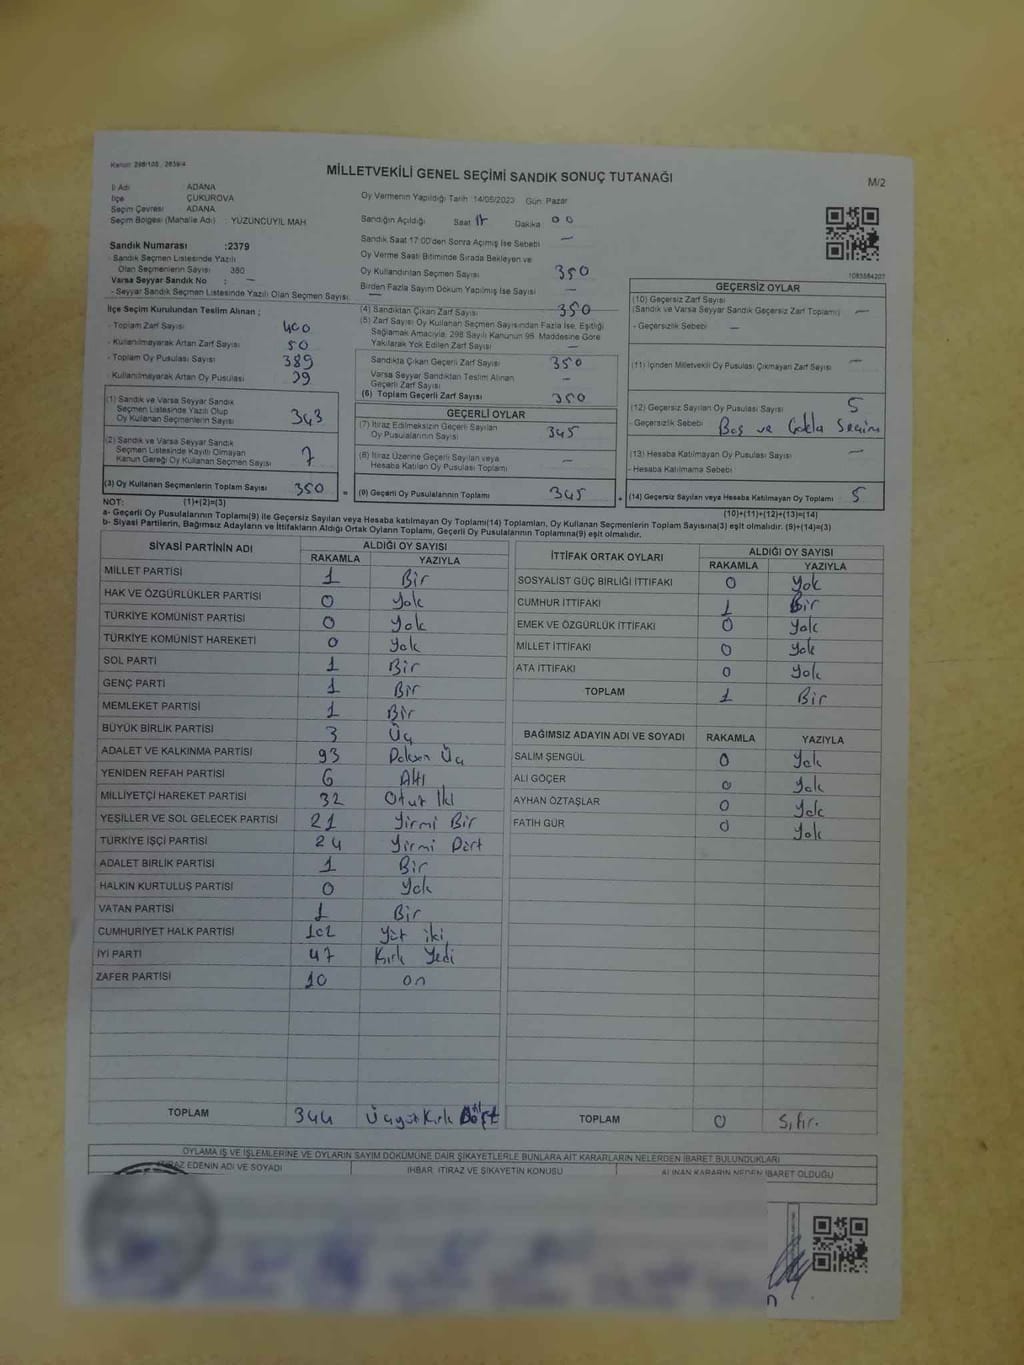 Kanun: 298/105, 2839/4
MİLLETVEKİLİ GENEL SEÇİMİ SANDIK SONUÇ TUTANAĞI
M/2
İl Adı : ADANA
İlçe : ÇUKUROVA
Seçim Çevresi : ADANA
Seçim Bölgesi (Mahalle Adı) : YÜZÜNCÜYIL MAH
Sandık Numarası :2379
- Sandık Seçmen Listesinde Yazılı
Olan Seçmenlerin Sayısı : 380
Varsa Seyyar Sandık No : —
- Seyyar Sandık Seçmen Listesinde Yazılı Olan Seçmen Sayısı: —
Oy Vermenin Yapıldığı Tarih :14/05/2023 Gün: Pazar
Sandığın Açıldığı Saat: 17 Dakika : 00
Sandık Saat 17:00'den Sonra Açımış İse Sebebi : —
Oy Verme Saati Bitiminde Sırada Bekleyen ve
Oy Kullandırılan Seçmen Sayısı : 350
Birden Fazla Sayım Döküm Yapılmış İse Sayısı : —
1083584207
İlçe Seçim Kurulundan Teslim Alınan ;
- Toplam Zarf Sayısı : 400
- Kullanılmayarak Artan Zarf Sayısı : 50
- Toplam Oy Pusulası Sayısı : 389
- Kullanılmayarak Artan Oy Pusulası : 39
(1) Sandık ve Varsa Seyyar Sandık
Seçmen Listesinde Yazılı Olup
Oy Kullanan Seçmenlerin Sayısı : 343
(2) Sandık ve Varsa Seyyar Sandık
Seçmen Listesinde Kayıtlı Olmayan
Kanun Gereği Oy Kullanan Seçmen Sayısı : 7
(3) Oy Kullanan Seçmenlerin Toplam Sayısı : 350
(4) Sandıktan Çıkan Zarf Sayısı : 350
(5) Zarf Sayısı Oy Kullanan Seçmen Sayısından Fazla İse, Eşitliği
Sağlamak Amacıyla, 298 Sayılı Kanunun 98. Maddesine Göre
Yakılarak Yok Edilen Zarf Sayısı : —
Sandıkta Çıkan Geçerli Zarf Sayısı : 350
Varsa Seyyar Sandıktan Teslim Alınan
Geçerli Zarf Sayısı : —
(6) Toplam Geçerli Zarf Sayısı : 350
GEÇERLİ OYLAR
(7) İtiraz Edilmeksizin Geçerli Sayılan
Oy Pusulalarının Sayısı : 345
(8) İtiraz Üzerine Geçerli Sayılan veya
Hesaba Katılan Oy Pusulası Toplamı : —
= (9) Geçerli Oy Pusulalarının Toplamı : 345
GEÇERSİZ OYLAR
(10) Geçersiz Zarf Sayısı
(Sandık ve Varsa Seyyar Sandık Geçersiz Zarf Toplamı) : —
- Geçersizlik Sebebi : —
(11) İçinden Milletvekili Oy Pusulası Çıkmayan Zarf Sayısı : —
(12) Geçersiz Sayılan Oy Pusulası Sayısı : 5
- Geçersizlik Sebebi : Boş ve Çokla Seçim
(13) Hesaba Katılmayan Oy Pusulası Sayısı : —
- Hesaba Katılmama Sebebi :
+ (14) Geçersiz Sayılan veya Hesaba Katılmayan Oy Toplamı : 5
NOT: (1)+(2)=(3)
(10)+(11)+(12)+(13)=(14)
a- Geçerli Oy Pusulalarının Toplamı(9) ile Geçersiz Sayılan veya Hesaba katılmayan Oy Toplamı(14) Toplamları, Oy Kullanan Seçmenlerin Toplam Sayısına(3) eşit olmalıdır. (9)+(14)=(3)
b- Siyasi Partilerin, Bağımsız Adayların ve İttifakların Aldığı Ortak Oyların Toplamı, Geçerli Oy Pusulalarının Toplamına(9) eşit olmalıdır.
SİYASİ PARTİNİN ADI ALDIĞI OY SAYISI
RAKAMLA YAZIYLA
MİLLET PARTİSİ 1 Bir
HAK VE ÖZGÜRLÜKLER PARTİSİ 0 Yok
TÜRKİYE KOMÜNİST PARTİSİ 0 Yok
TÜRKİYE KOMÜNİST HAREKETİ 0 Yok
SOL PARTİ 1 Bir
GENÇ PARTİ 1 Bir
MEMLEKET PARTİSİ 1 Bir
BÜYÜK BİRLİK PARTİSİ 3 Üç
ADALET VE KALKINMA PARTİSİ 93 Doksan Üç
YENİDEN REFAH PARTİSİ 6 Altı
MİLLİYETÇİ HAREKET PARTİSİ 32 Otuz İki
YEŞİLLER VE SOL GELECEK PARTİSİ 21 Yirmi Bir
TÜRKİYE İŞÇİ PARTİSİ 24 Yirmi Dört
ADALET BİRLİK PARTİSİ 1 Bir
HALKIN KURTULUŞ PARTİSİ 0 Yok
VATAN PARTİSİ 1 Bir
CUMHURİYET HALK PARTİSİ 102 Yüz iki
İYİ PARTİ 47 Kırk Yedi
ZAFER PARTİSİ 10 on
TOPLAM 344 Üçyüz Kırk Dört
İTTİFAK ORTAK OYLARI ALDIĞI OY SAYISI
RAKAMLA YAZIYLA
SOSYALİST GÜÇ BİRLİĞİ İTTİFAKI 0 Yok
CUMHUR İTTİFAKI 1 Bir
EMEK VE ÖZGÜRLÜK İTTİFAKI 0 Yok
MİLLET İTTİFAKI 0 Yok
ATA İTTİFAKI 0 Yok
TOPLAM 1 Bir
BAĞIMSIZ ADAYIN ADI VE SOYADI RAKAMLA YAZIYLA
SALİM ŞENGÜL 0 Yok
ALİ GÖÇER 0 Yok
AYHAN ÖZTAŞLAR 0 Yok
FATİH GÜR 0 Yok
TOPLAM 0 Sıfır.
OYLAMA İŞ VE İŞLEMLERİNE VE OYLARIN SAYIM DÖKÜMÜNE DAİR ŞİKAYETLERLE BUNLARA AİT KARARLARIN NELERDEN İBARET BULUNDUKLARI
İTİRAZ EDENİN ADI VE SOYADI İHBAR, İTİRAZ VE ŞİKAYETİN KONUSU ALINAN KARARIN NEDEN İBARET OLDUĞU